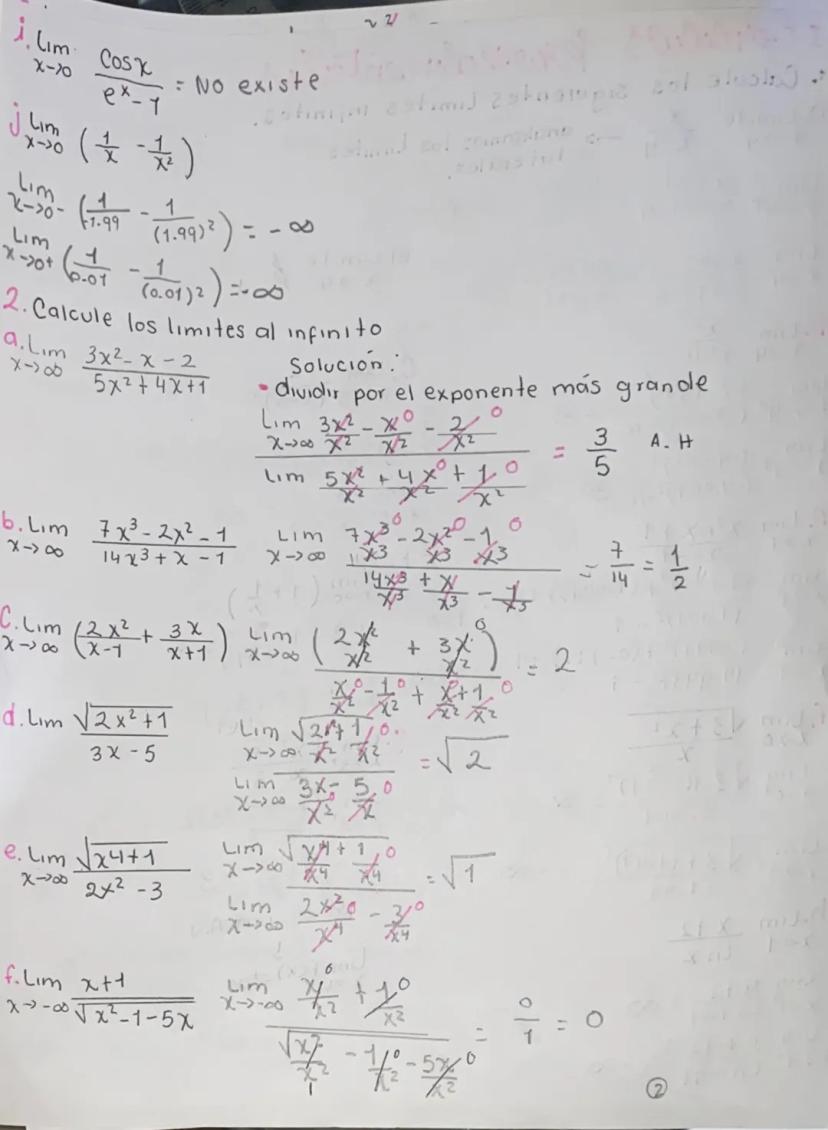 i. Lim x→0 cosx / e^x - 1 = No existe
j Lim x→0 (1/x - 1/x²)
Lim x→0- (1/-1.99 - 1/(1.99)²) = -∞
Lim x→0+ (1/0.01 - 1/(0.01)²) = -∞
2. Calcule los limites al infinito
a. Lim x→∞ 3x² - x - 2 / 5x² + 4x + 1 Solución:
• dividir por el exponente más grande
Lim x→∞ 3x²/x² - x/x² 0 - 2/x² 0 / Lim 5x²/x² + 4x/x² 0 + 1/x² 0 = 3/5 A.H
b. Lim x→∞ 7x³ - 2x² - 1 / 14x³ + x - 1 Lim x→∞ 7x³/x³ 0 - 2x²/x³ 0 - 1/x³ 0 / 14x³/x³ + x/x³ - 1/x³ = 7/14 = 1/2
C. Lim x→∞ (2x²/x-1 + 3x/x+1) Lim x→∞ (2x²/x² + 3x/x² 0) / x/x² 0 - 1/x² 0 + x/x² 0 + 1/x² 0 = 2
d. Lim √2x²+1 / 3x - 5 Lim x→∞ √2x²/x² + 1/x² 0 / Lim x→∞ 3x/x² 0 - 5/x 0 = √2
e. Lim x→∞ √x4+1 / 2x² - 3 Lim x→∞ √x4/x4 + 1/x4 0 / Lim x→∞ 2x²/x4 0 - 3/x4 0 = √1
f. Lim x→-∞ x+1 / √x²-1-5x Lim x→-∞ x/x² 0 + 1/x² 0 / √x²/x² 1 - 1/x² 0 - 5x/x² 0 = 0/1 = 0
2